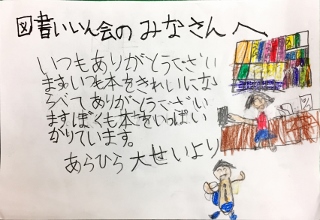 図書いいん会のみなさんへ
いつもありがとうござい
ます。いつも本をきれいにな
らべてありがとうござい
ますぼくも本をいっぱい
かりています。
あらひら大せいより